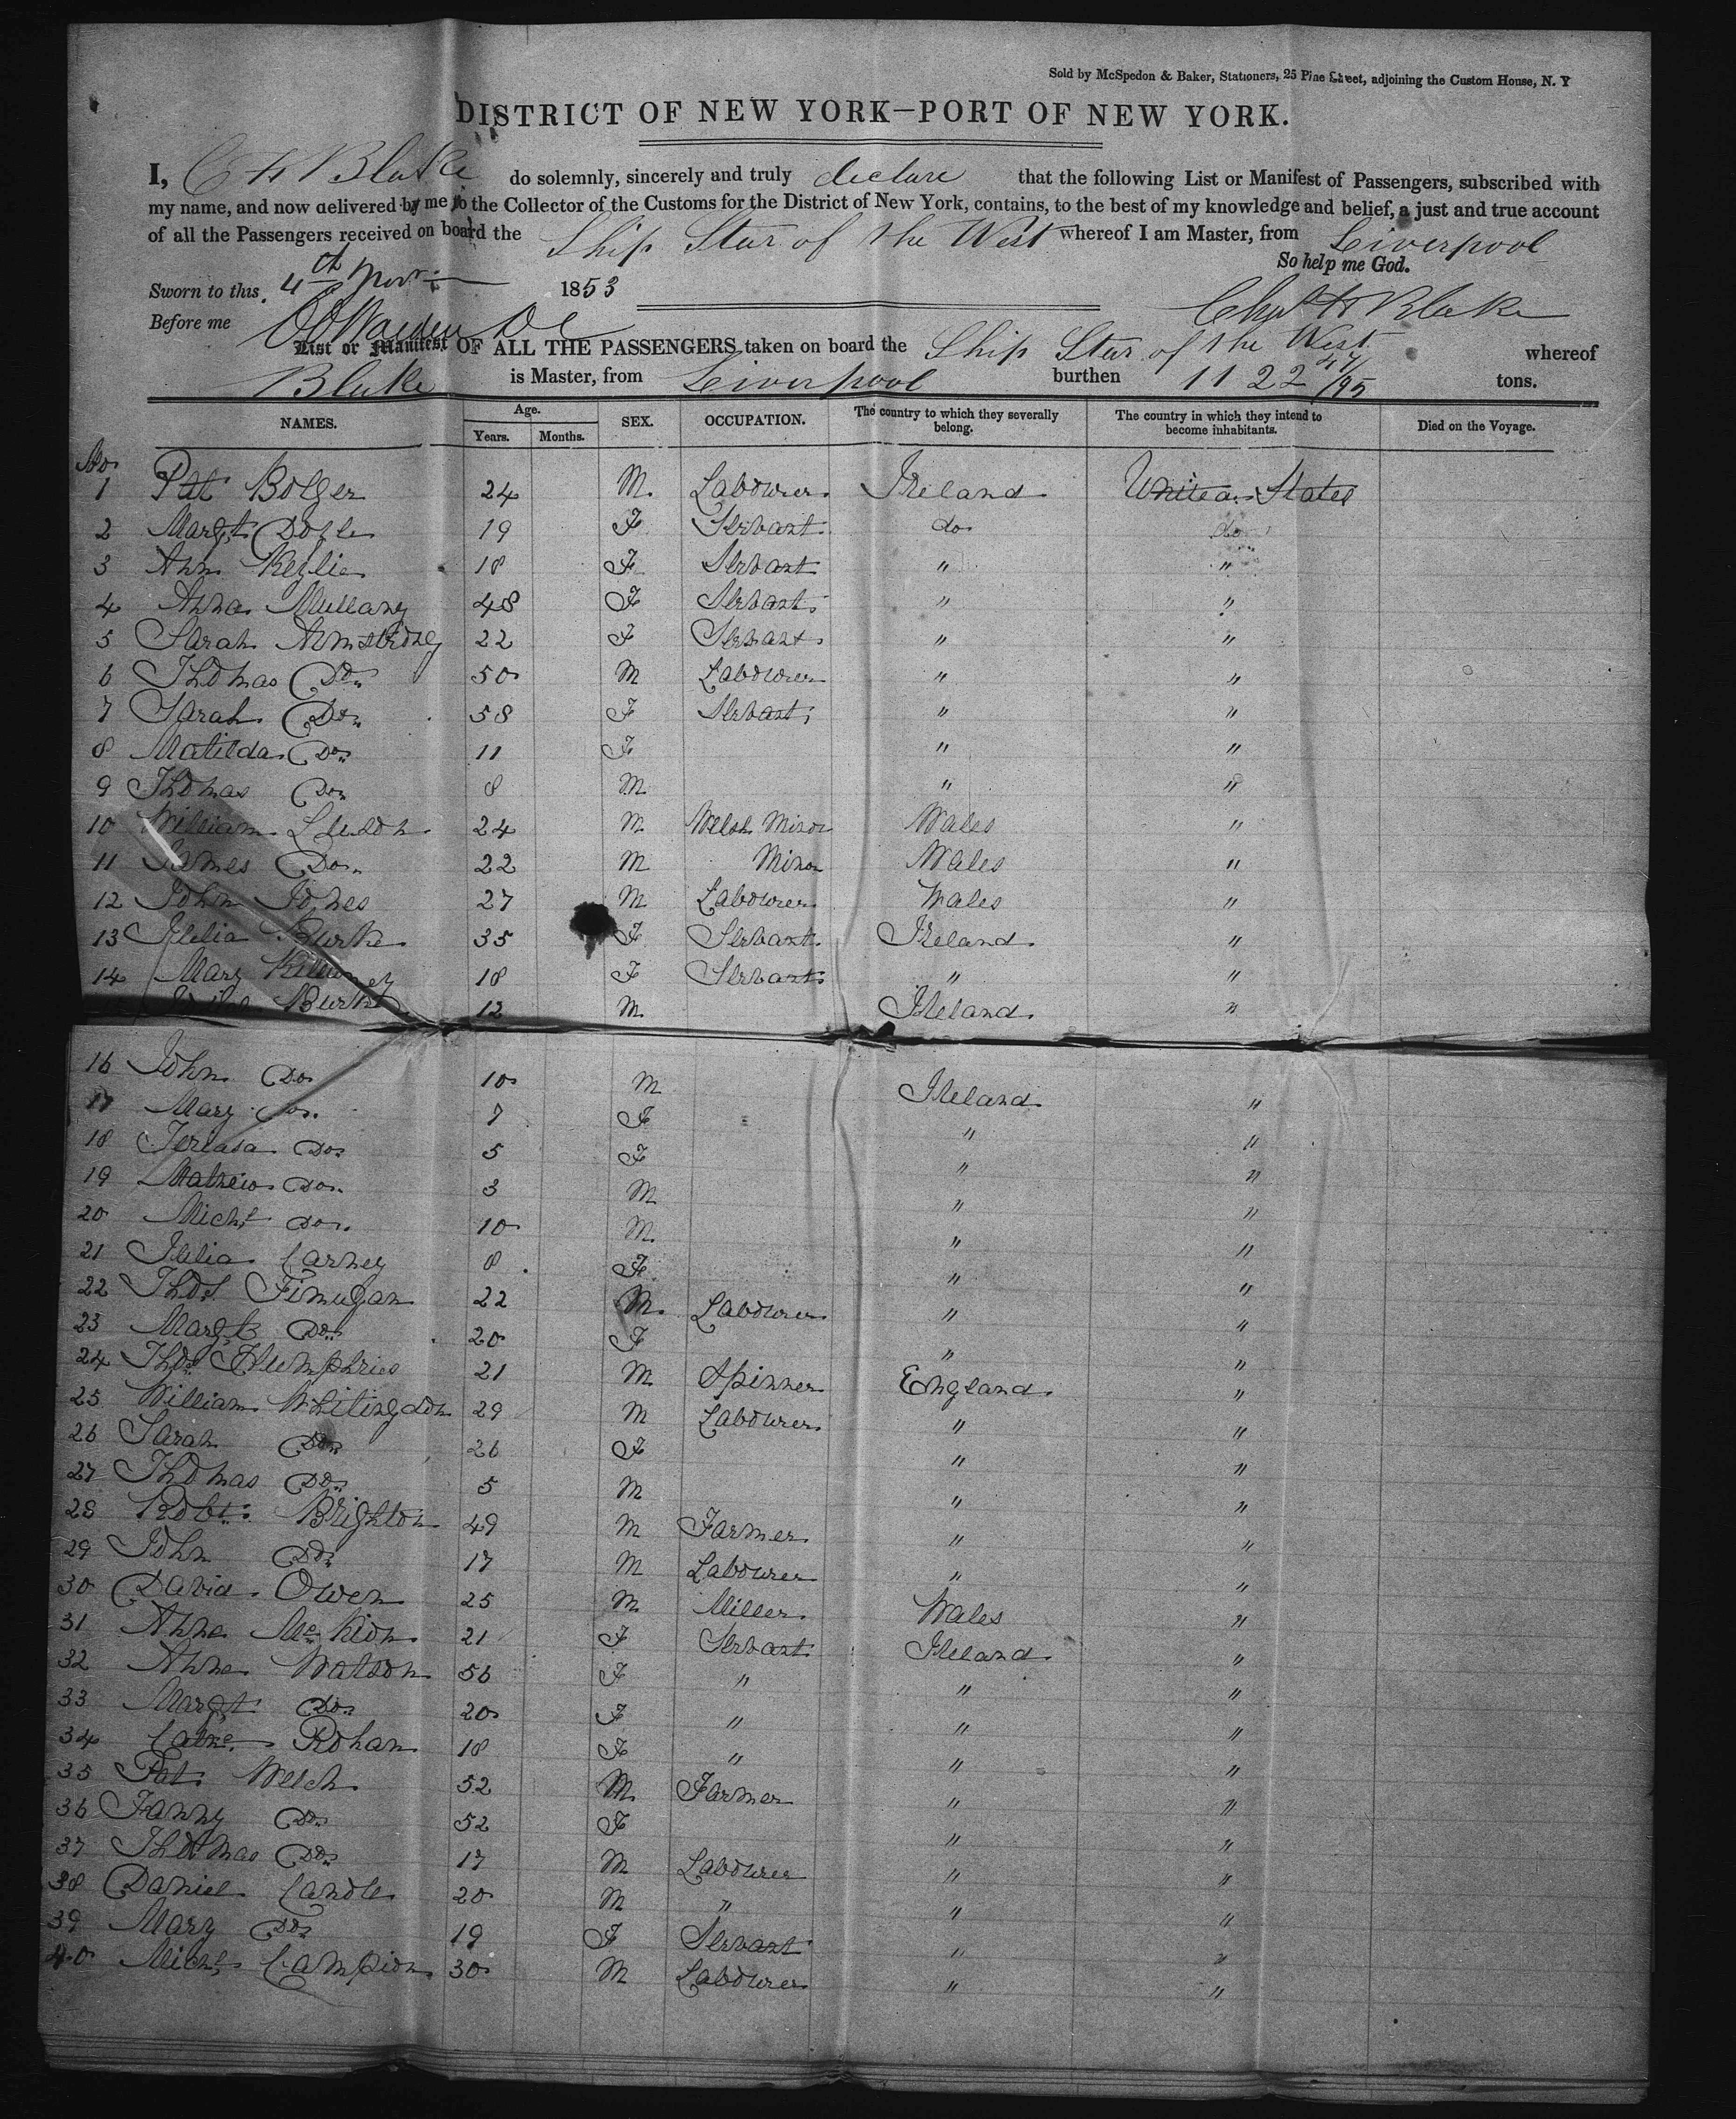 Sold by McSpedon & Baker, Stationers, 25 Pine Street, adjoining the Custom House, N. Y
DISTRICT OF NEW YORK—PORT OF NEW YORK.
I, C H Blake do solemnly, sincerely and truly declare that the following List or Manifest of Passengers, subscribed with
my name, and now delivered by me to the Collector of the Customs for the District of New York, contains, to the best of my knowledge and belief, a just and true account
of all the Passengers received on board the Ship Star of the West whereof I am Master, from Liverpool
So help me God.
Sworn to this 4th Novr 1853
Chas H Blake
Before me
List or Manifest OF ALL THE PASSENGERS taken on board the Ship Star of the West whereof
Blake is Master, from Liverpool burthen 1122 47/95 tons.
NAMES. Age. Years. Months. SEX. OCCUPATION. The country to which they severally belong. The country in which they intend to become inhabitants. Died on the Voyage.
No
1 Pat Bolger 24 M. Labourer Ireland United States
2 Margt Doyle 19 F Servant do do
3 Ann 18 F Servant " "
4 Anna Mullany 48 F Servant " "
5 Sarah Armstrong 22 F Servant " "
6 Thomas Do 50 M Labourer " "
7 Sarah Do 58 F Servant " "
8 Matilda Do 11 F " "
9 Thomas Do 8 M " "
10 William 24 M Welsh Minor Wales "
11 James Do 22 M Minor Wales "
12 John Jones 27 M Labourer Wales "
13 Burke 35 F Servant Ireland "
14 Mary 18 F Servant " "
Burke 12 M Ireland "
16 John Do 10 M Ireland "
17 Mary Do 7 F " "
18 Teriasa Do 5 F " "
19 Mathew Do 3 M " "
20 Michl Do 10 M " "
21 Carney 8 F " "
22 Thos Finnugan 22 M Labourer " "
23 Margt Do 20 F " "
24 Thos Humphries 21 M Spinner England "
25 William Whitingdon 29 M Labourer " "
26 Sarah Do 26 F " "
27 Thomas Do 5 M " "
28 Robt Brighton 49 M Farmer " "
29 John Do 17 M Labourer " "
30 David Owen 25 M Miller Wales "
31 Anne McKion 21 F Servant Ireland "
32 Anne Watson 56 F " " "
33 Margt Do 20 F " " "
34 Cathe Rohan 18 F " " "
35 Pat Welch 52 M Farmer " "
36 Fanny Do 52 F " "
37 Thomas Do 17 M Labourer " "
38 Daniel Candle 20 M " " "
39 Mary Do 19 F Servant " "
40 Michl Campion 30 M Labourer " "